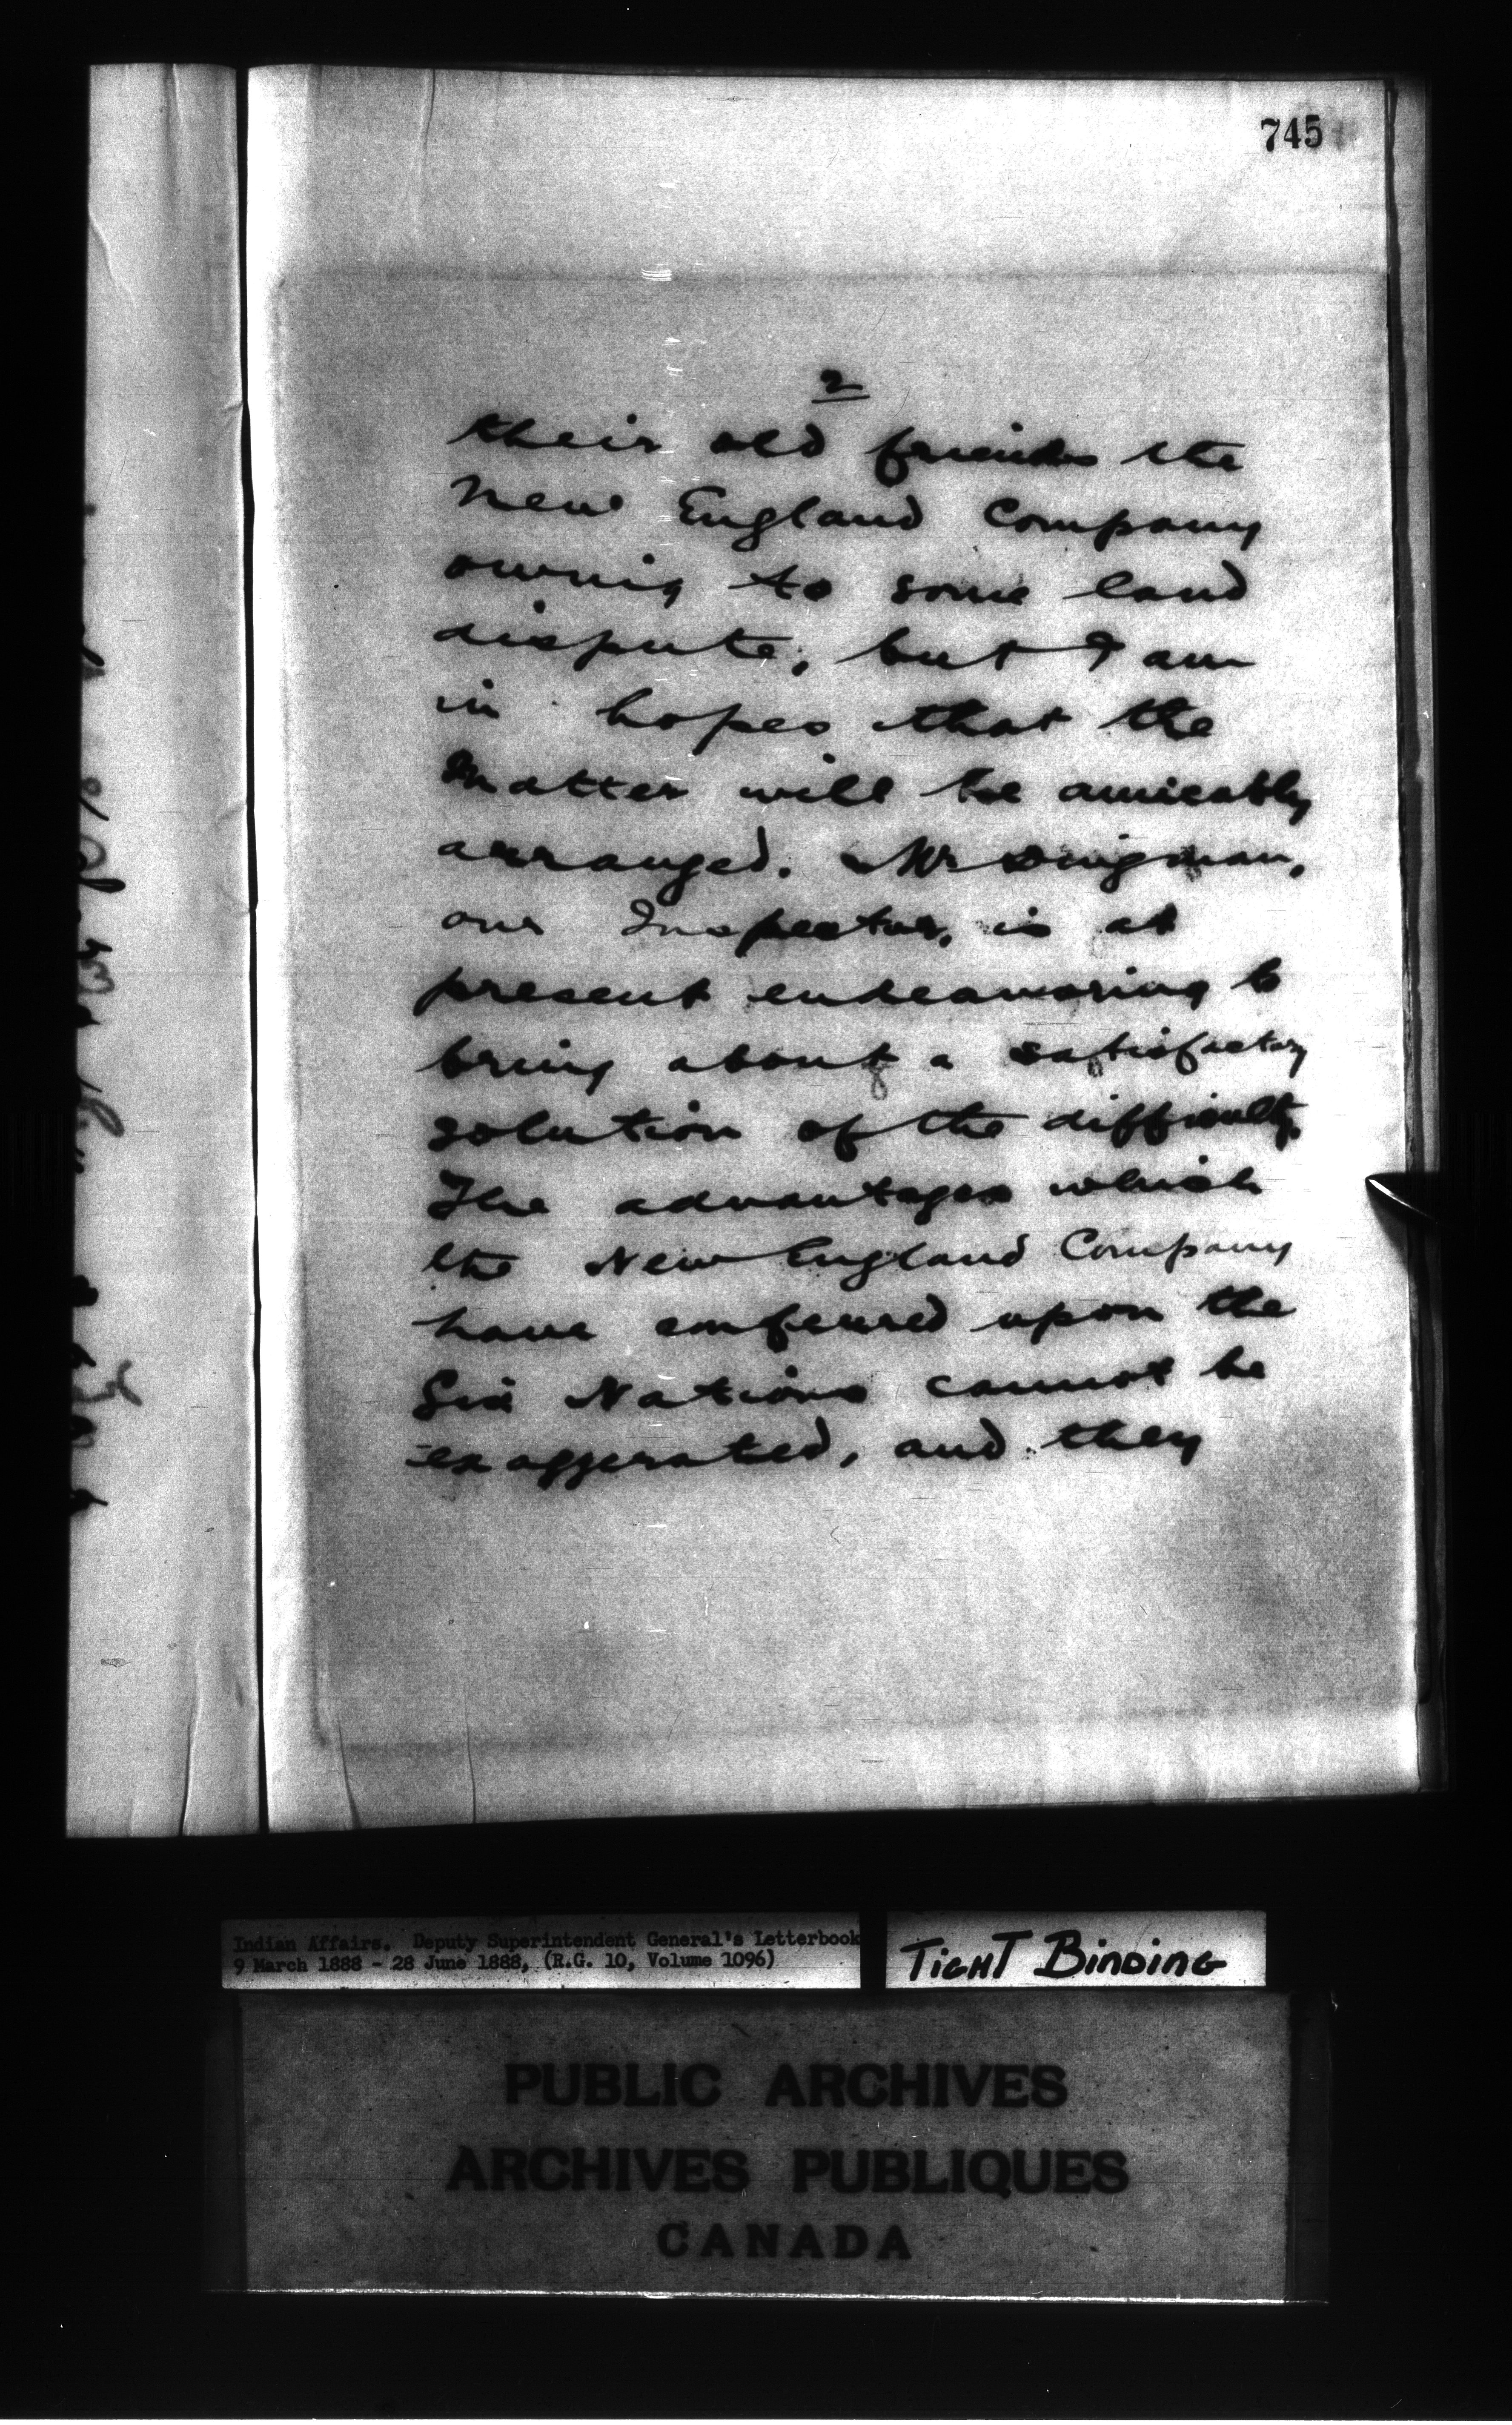 745
2
their old friends the
New England Company
owing to some land
dispute, but I am
in hopes that the
Matter will be amicably
arranged. Mr Dingman,
our Inspector, is at
present endeavouring to
bring about a satisfactory
solution of the difficulty.
The advantages which
the New England Company
have conferred upon the
Six Nations cannot be
exaggerated, and they
Indian Affairs. Deputy Superintendent General's Letterbook
9 March 1888 - 28 June 1888, (R.G. 10, Volume 1096)
TIGHT BINDING
PUBLIC ARCHIVES
ARCHIVES PUBLIQUES
CANADA